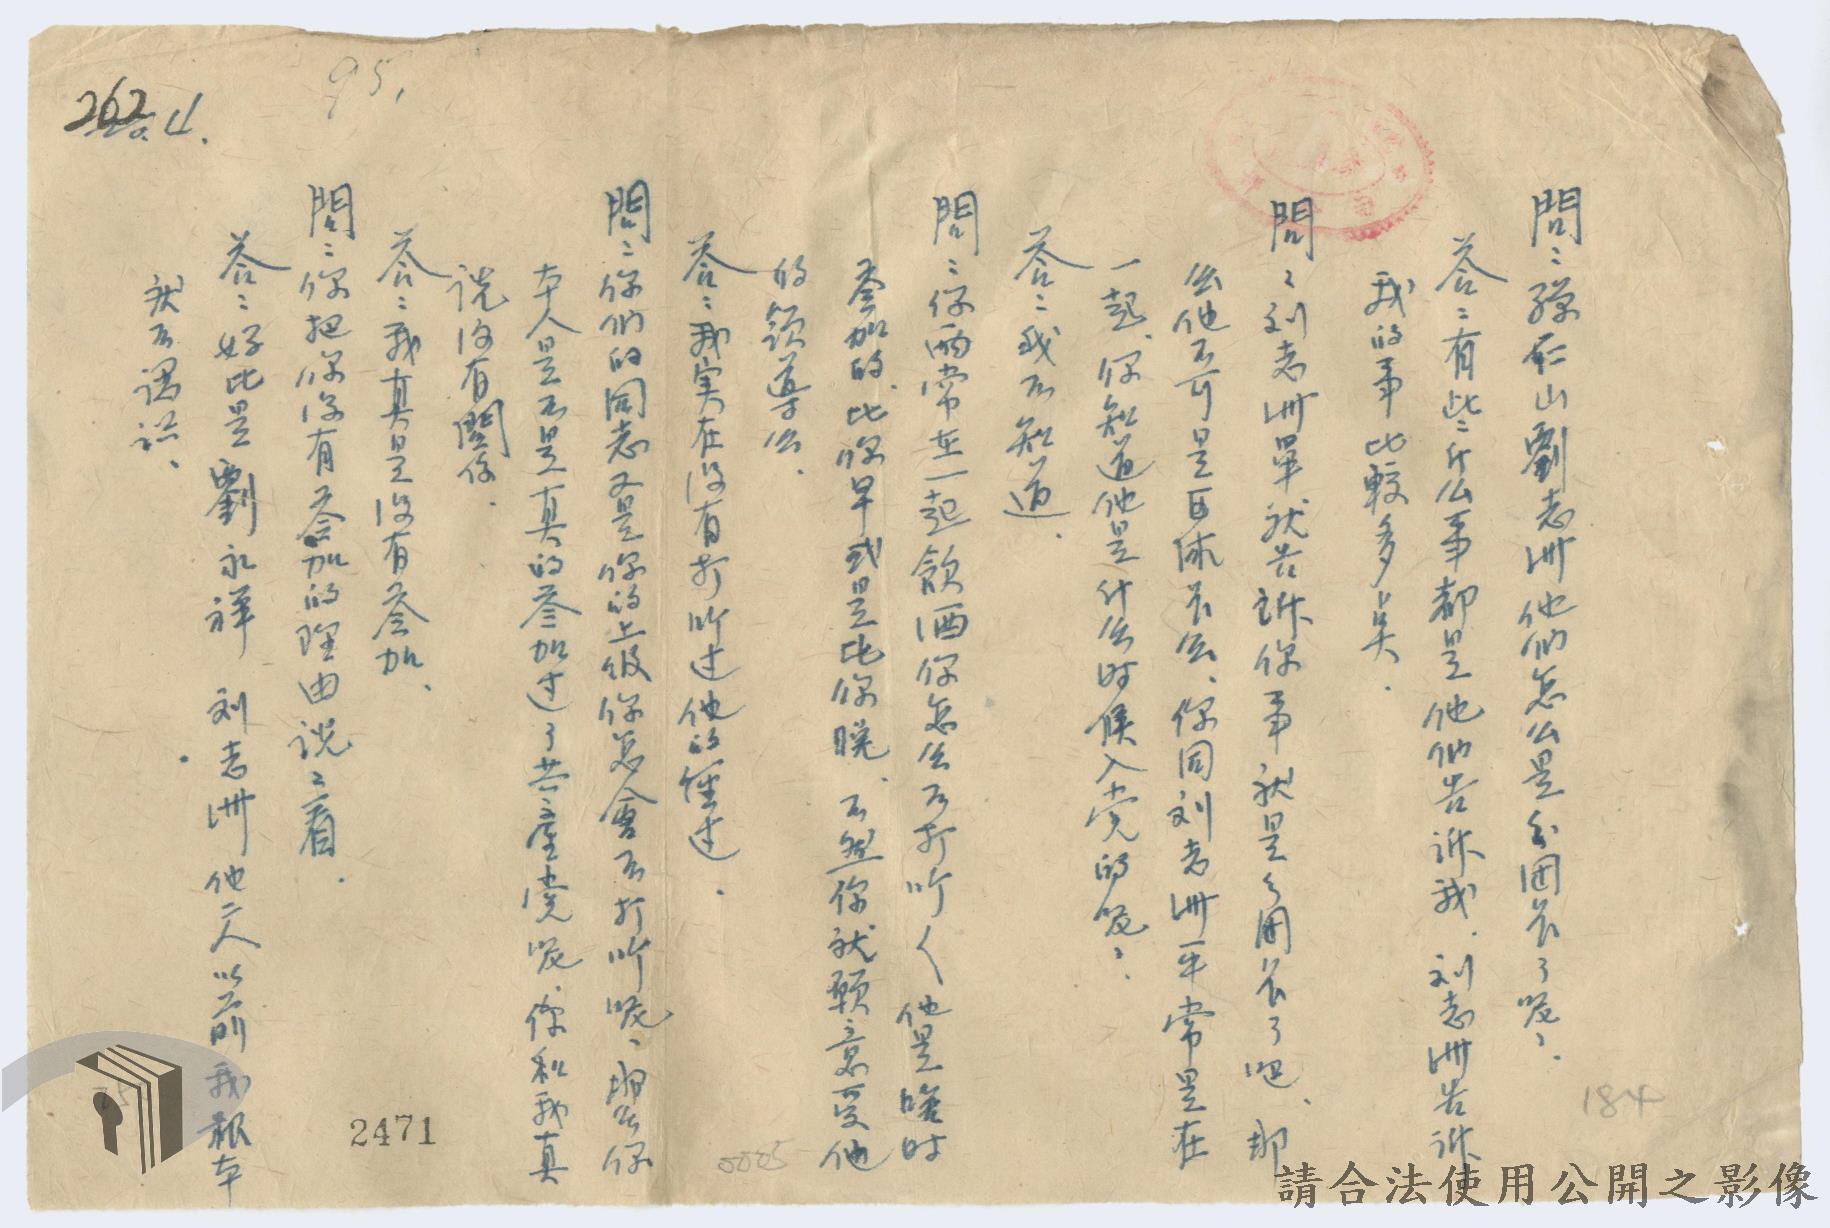 262
95,
問：孫爾山劉志洲他们怎么是分团长了呢？
荅：有些什么事都是他们告訴我，刘志洲告訴
我的事比較多点.
問：刘志洲單就告訴你事就是分团长了吧、那
么他不可是团体长么、你同刘志洲平常是在
一起、你知道他是什么时候入党的呢？
荅：我不知道.
問：你両常在一起飲酒你怎么不打听〈他是啥时
叅加的、比你早或是比你晚、不然你就願意受他
的領導么、
荅：我実在没有打听过他的経过.
問：你们的同志又是你的上级你怎会不打听呢、那么你
本人是不是真的叅加过了共產党呢、你和我真
说没有関係.
荅：我真是没有叅加、
問：你把你没有叅加的理由说：看.
荅：好比是劉永祥 刘志洲他二人以前我根本
就不認識、
184
0005
2471
請合法使用公開之影像